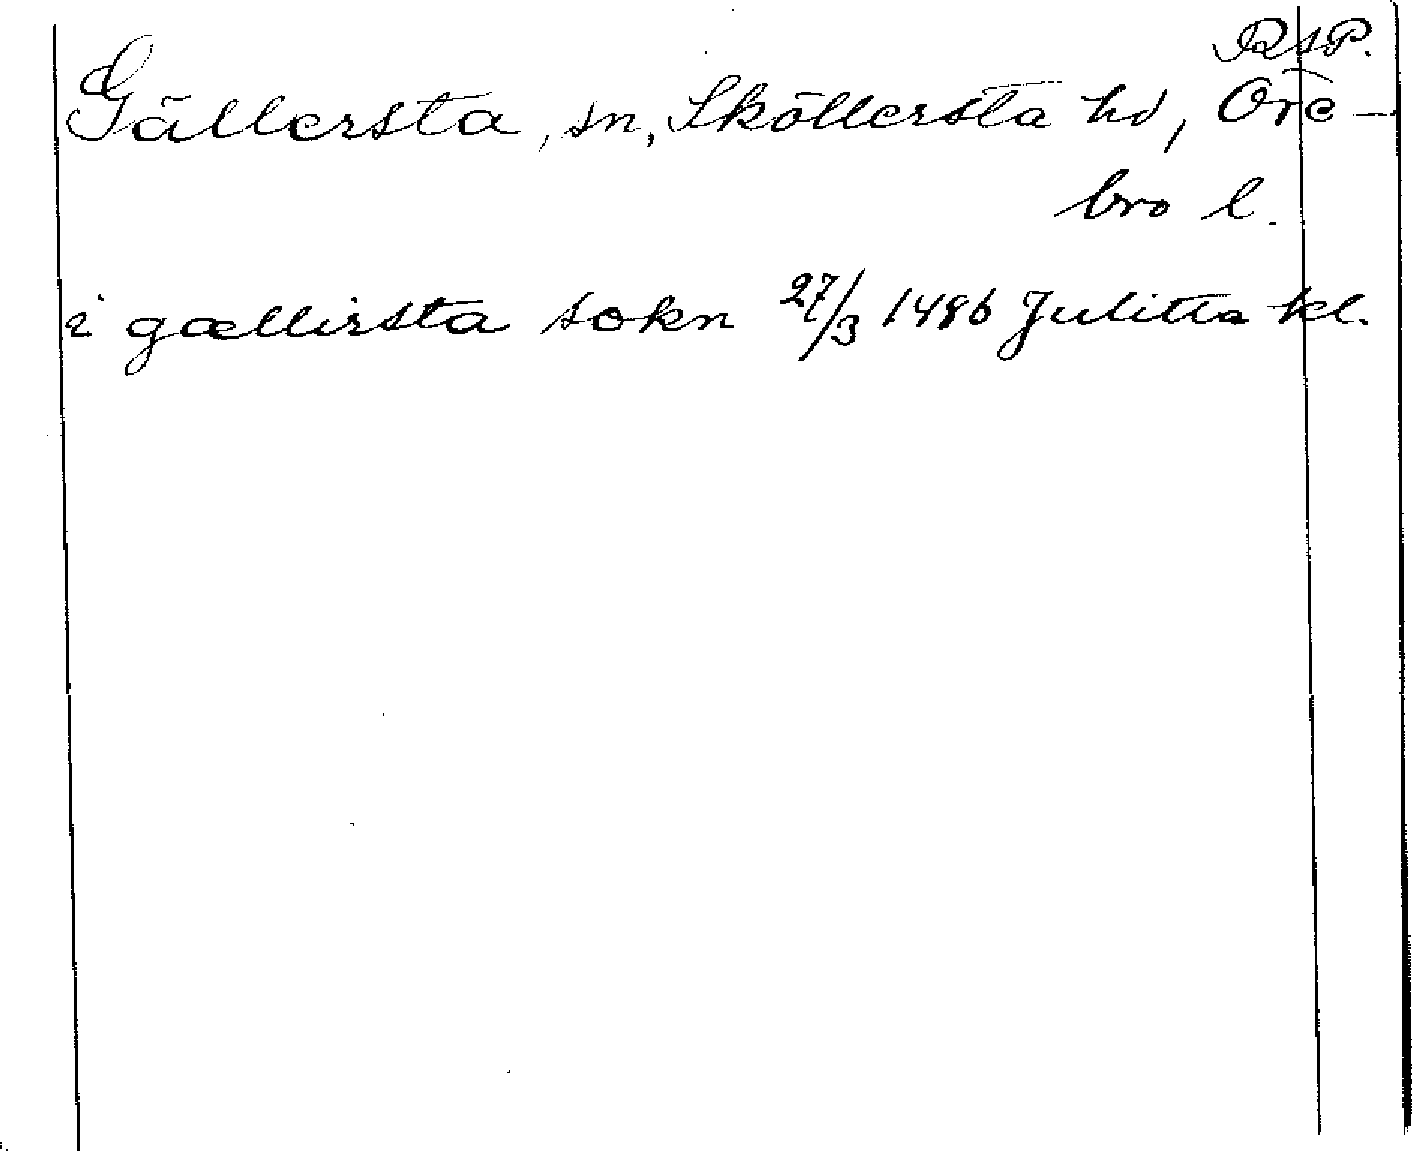 RAP.
Gällersta, sn, Sköllersta hd, Öre-
bro l.
i gællirsta sokn 27/3 1486 Julitta kl.